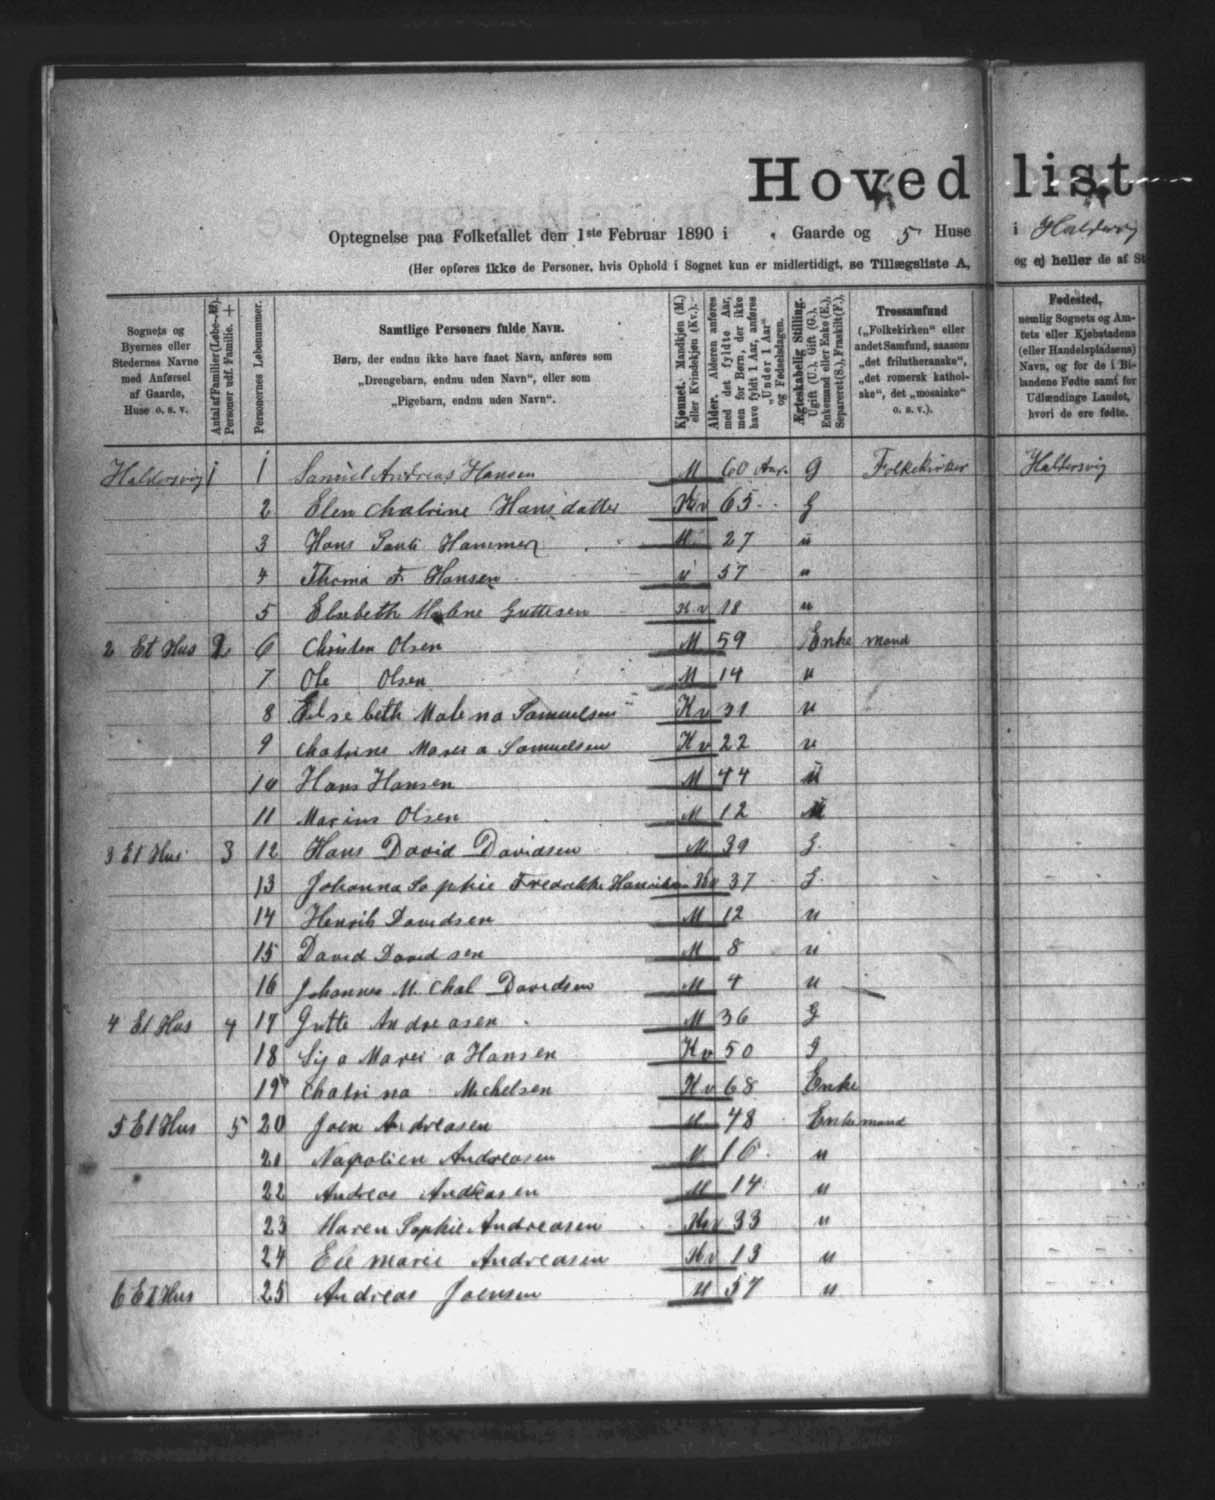 Hovedlist
Optegnelse paa Folketallet den 1ste Februar 1890 i „ Gaarde og 5 Huse i Haldersvig
(Her opføres ikke de Personer, hvis Ophold i Sognet kun er midlertidigt, se Tillægsliste A, og ej heller de af St
Sognets og Byernes eller Stedernes Navne med Anførsel af Gaarde, Huse o. s. v.
Antal af Familier (Løbe-№). Personer udf. Familie. +
Personernes Løbenummer.
Samtlige Personers fulde Navn.
Børn, der endnu ikke have faaet Navn, anføres som
„Drengebarn, endnu uden Navn“, eller som
„Pigebarn, endnu uden Navn“.
Kjønnet. Mandkjøn (M.) eller Kvindekjøn (Kv.).
Alder. Alderen anføres med det fyldte Aar, men for Børn, der ikke have fyldt 1 Aar, anføres „Under 1 Aar“ og Fødselsdagen.
Ægteskabelig Stilling. Ugift (U.), Gift (G.), Enkemand eller Enke (E.), Separeret (S.), Fraskilt (F.).
Trossamfund
(„Folkekirken“ eller
andet Samfund, saasom
„det frilutheranske“,
„det romersk kathol-
ske“, det „mosaiske“
o. s. v.).
Fødested,
nemlig Sognets og Am-
tets eller Kjøbstadens
(eller Handelspladsens)
Navn, og for de i Bi-
landene Fødte samt for
Udlændinge Landet,
hvori de ere fødte.
Haldersvig 1 1 Samuel Andreas Hansen M 60 Aar. G Folkekirken Haldersvig
2 Elen Chatrine Hansdatter Kv 65 G
3 Hans Hammer M 27 u
4 Thoma F Hansen 57 u
5 Elsebeth Malene Guttesen Kv 18 u
2 Et Hus 2 6 Christen Olsen M 59 Enkemand
7 Ole Olsen M 14 u
8 Elsebeth Malena Samuelsen Kv 31 u
9 Chatrine Maria Samuelsen Kv 22 u
10 Hans Hansen M 44 u
11 Marius Olsen M 12 u
3 Et Hus 3 12 Hans David Davidsen M 39 G.
13 Johanna Sophie Fredrikke Kv 37 G.
14 Henrik Davidsen M 12 u
15 David Davidsen M 8 u
16 Johannes M. Chal Davidsen M 4 u
4 Et Hus 4 17 Gutte Andreasen M 36 G
18 Maria Hansen Kv 50 G
19 Chatrina Michelsen Kv 68 Enke
5 Et Hus 5 20 Joen Andreasen M 48 Enkemand
21 Napolien Andreasen M 16 u
22 Andreas Andreasen M 14 u
23 Maren Sophie Andreasen Kv 33 u
24 Marie Andreasen Kv 13 u
6 Et Hus 25 Andreas Joensen M 57 u